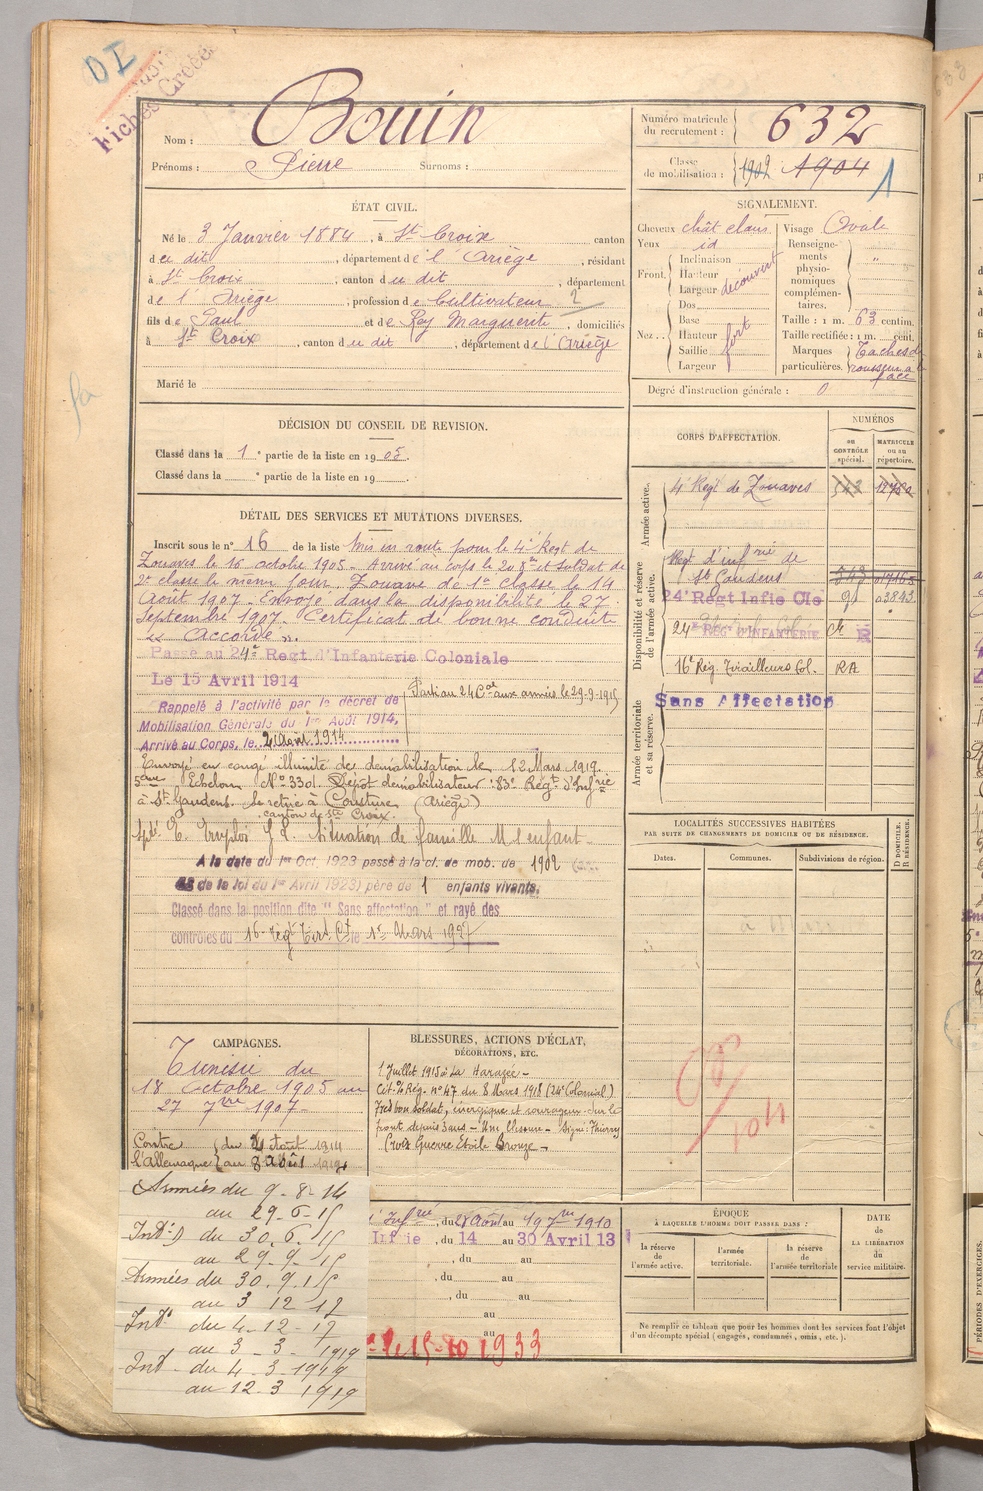 DI
Fiches Créées
Nom : Bouin
Prénoms : Pierre Surnoms :
Numéro matricule du recrutement : 632
Classe de mobilisation : 1902 1904 1
ÉTAT CIVIL.
Né le 3 Janvier 1884, à St Croix canton
d u dit, département de l'Ariège, résidant
à St Croix, canton du dit, département
de l'Ariège, profession de Cultivateur 2
fils de Paul et de Rey Marguerite, domiciliés
à St Croix, canton du dit, département de l'Ariège
Marié le
SIGNALEMENT.
Cheveux chât clairs Visage Ovale
Yeux id
Front Inclinaison
Hauteur
Largeur découvert
Nez Dos
Base
Hauteur fort
Saillie
Largeur
Renseignements physionomiques complémentaires. "
Taille : 1 m. 63 centim.
Taille rectifiée : 1 m. cent.
Marques particulières. Taches de rousseur a face
Degré d'instruction générale : 0
DÉCISION DU CONSEIL DE REVISION.
Classé dans la 1e partie de la liste en 1905.
Classé dans la e partie de la liste en 19
DÉTAIL DES SERVICES ET MUTATIONS DIVERSES.
Inscrit sous le n° 16 de la liste Mis en route pour le 4e Regt de
Zouaves le 16 octobre 1905. Arrivé au corps le 20 8bre et soldat de
2e classe le même jour. Zouave de 1re classe le 14
Août 1907. Envoyé dans la disponibilité le 27
Septembre 1907. Certificat de bonne conduite
" Accordé ".
Passé au 24e Regt d'Infanterie Coloniale
Le 15 Avril 1914
Rappelé à l'activité par le décret de
Mobilisation Générale du 1er Août 1914,
Arrivé au Corps, le 2 août 1914
Parti au 24 Cal aux armées le 29.9.1915
Envoyé en congé illimité de démobilisation le 12 Mars 1919.
5ème Echelon N° 3301. Dépôt démobilisateur : 83e Régt d'Infrie
à St Gaudens. Se retire à Cousture (Ariège)
canton de Ste Croix.
Situation de famille M 1 enfant
A la date du 1er Oct. 1923 passé à la cl. de mob. de 1902
de la loi du 1er Avril 1923) père de 1 enfants vivants.
Classé dans la position dite " Sans affectation " et rayé des
contrôles du 16e régt Tirs Ct le 1er Mars 1927
CORPS D'AFFECTATION.
NUMÉROS
au CONTRÔLE spécial.
MATRICULE ou au répertoire.
Armée active.
4e Regt de Zouaves 543 12760
Disponibilité et réserve de l'armée active.
Regt d'infrie de
St Gaudens 543 017163
24e Regt Infie Cle 03843
24e REGt D'INFANTERIE Col. R
16e Rég. Tirailleurs Col. RA
Armée territoriale et sa réserve.
Sans Affectation
LOCALITÉS SUCCESSIVES HABITÉES
PAR SUITE DE CHANGEMENTS DE DOMICILE OU DE RÉSIDENCE.
Dates. Communes. Subdivisions de région.
D DOMICILE. R RÉSIDENCE.
CAMPAGNES.
Tunisie du
18 octobre 1905 au
27 7bre 1907
Contre l'Allemagne du 2 Août 1914
au
Armées du 9-8-14
au 29-6-15
Intr du 30.6.15
au 29-9-15
Armées du 30.9.15
au 3 12 17
Intr du 4-12-17
au 3-3-1919
Intr du 4-3-1919
au 12.3 1919
BLESSURES, ACTIONS D'ÉCLAT, DÉCORATIONS, ETC.
1 Juillet 1915 à La Harazée -
Cit. % Rég. n° 47 du 8 Mars 1918 (24e Colonial)
Très bon soldat, énergique et courageux. Sur le
front depuis 3 ans - Une blessure - Signé : Thierry
Croix Guerre Etoile Bronze -
Infrie, du 28 Août au 19 7bre 1910
Infie, du 14 au 30 Avril 13
, du au
, du au
, du au
au
au
le 15-10 1933
ÉPOQUE
À LAQUELLE L'HOMME DOIT PASSER DANS :
la réserve de l'armée active.
l'armée territoriale.
la réserve de l'armée territoriale
DATE DE LA LIBÉRATION du service militaire.
Ne remplir ce tableau que pour les hommes dont les services font l'objet
d'un décompte spécial (engagés, condamnés, omis, etc.).
PÉRIODES D'EXERCICES.